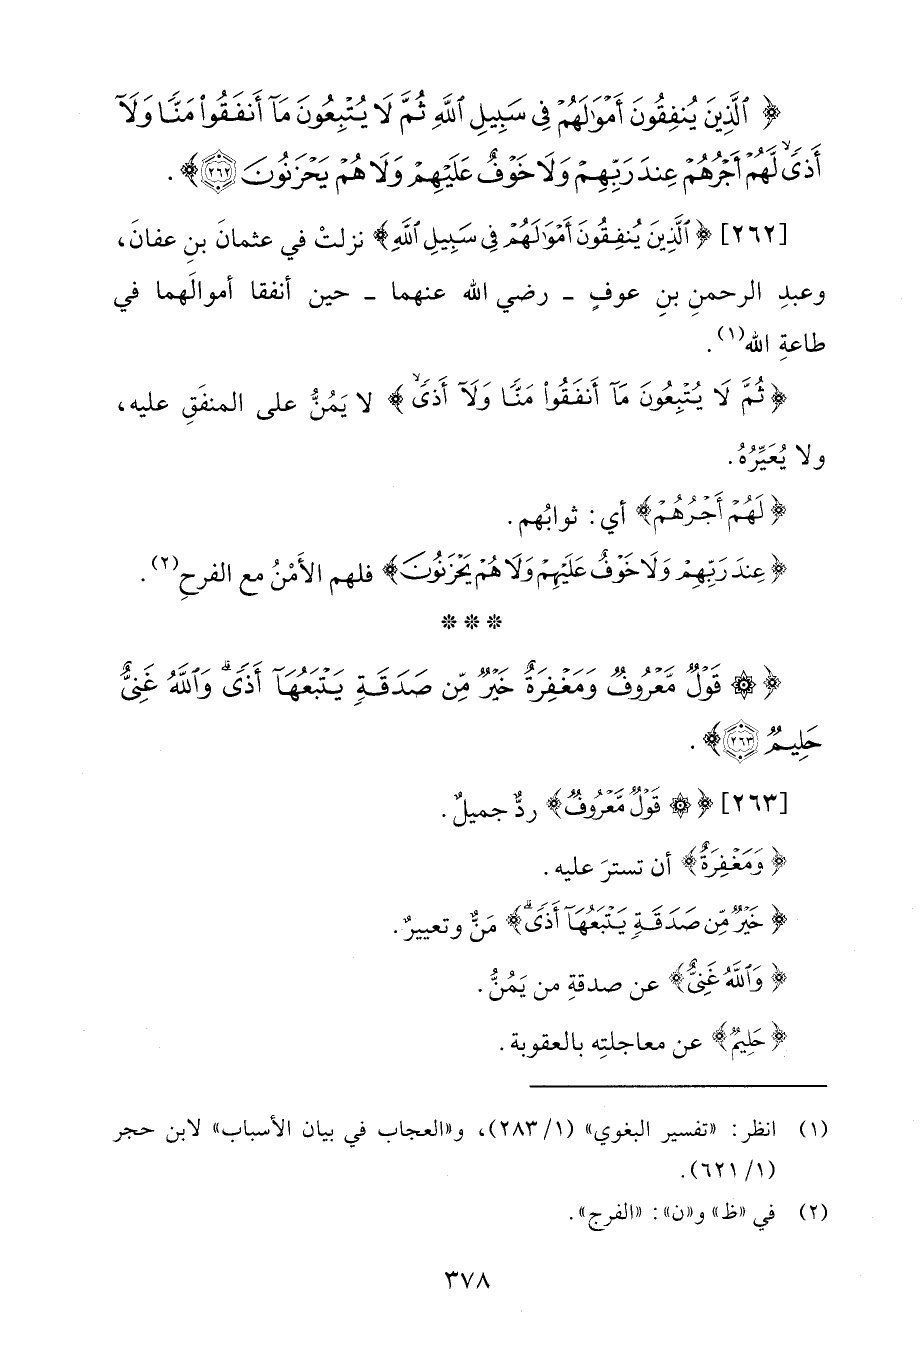 ﴿ ٱلَّذِينَ يُنفِقُونَ أَمْوَٰلَهُمْ فِى سَبِيلِ ٱللَّهِ ثُمَّ لَا يُتْبِعُونَ مَآ أَنفَقُوا۟ مَنًّا وَلَآ
أَذًىۙ لَّهُمْ أَجْرُهُمْ عِندَ رَبِّهِمْ وَلَا خَوْفٌ عَلَيْهِمْ وَلَا هُمْ يَحْزَنُونَ ٢٦٢ ﴾ .
[٢٦٢] ﴿ ٱلَّذِينَ يُنفِقُونَ أَمْوَٰلَهُمْ فِى سَبِيلِ ٱللَّهِ ﴾ نزلتْ في عثمانَ بنِ عفانَ،
وعبدِ الرحمنِ بنِ عوفٍ - رضي الله عنهما - حين أنفقا أموالَهما في
طاعةِ الله(١) .
﴿ ثُمَّ لَا يُتْبِعُونَ مَآ أَنفَقُوا۟ مَنًّا وَلَآ أَذًىۙ ﴾ لا يَمُنُّ على المنفَقِ عليه،
ولا يُعَيِّرُهُ.
﴿ لَهُمْ أَجْرُهُمْ ﴾ أي: ثوابُهم.
﴿ عِندَ رَبِّهِمْ وَلَا خَوْفٌ عَلَيْهِمْ وَلَا هُمْ يَحْزَنُونَ ﴾ فلهم الأَمْنُ مع الفرحِ(٢) .
* * *
﴿ ۞ قَوْلٌ مَّعْرُوفٌ وَمَغْفِرَةٌ خَيْرٌ مِّن صَدَقَةٍ يَتْبَعُهَآ أَذًىۗ وَٱللَّهُ غَنِىٌّ
حَلِيمٌ ٢٦٣ ﴾ .
[٢٦٣] ﴿ ۞ قَوْلٌ مَّعْرُوفٌ ﴾ ردٌّ جميلٌ.
﴿ وَمَغْفِرَةٌ ﴾ أن تسترَ عليه.
﴿ خَيْرٌ مِّن صَدَقَةٍ يَتْبَعُهَآ أَذًىۗ ﴾ مَنٌّ وتعييرٌ.
﴿ وَٱللَّهُ غَنِىٌّ ﴾ عن صدقةِ من يَمُنُّ.
﴿ حَلِيمٌ ﴾ عن معاجلتِه بالعقوبة.
(١) انظر: «تفسير البغوي» (١/ ٢٨٣)، و«العجاب في بيان الأسباب» لابن حجر
(١/ ٦٢١).
(٢) في «ظ» و«ن»: «الفرج».
٣٧٨